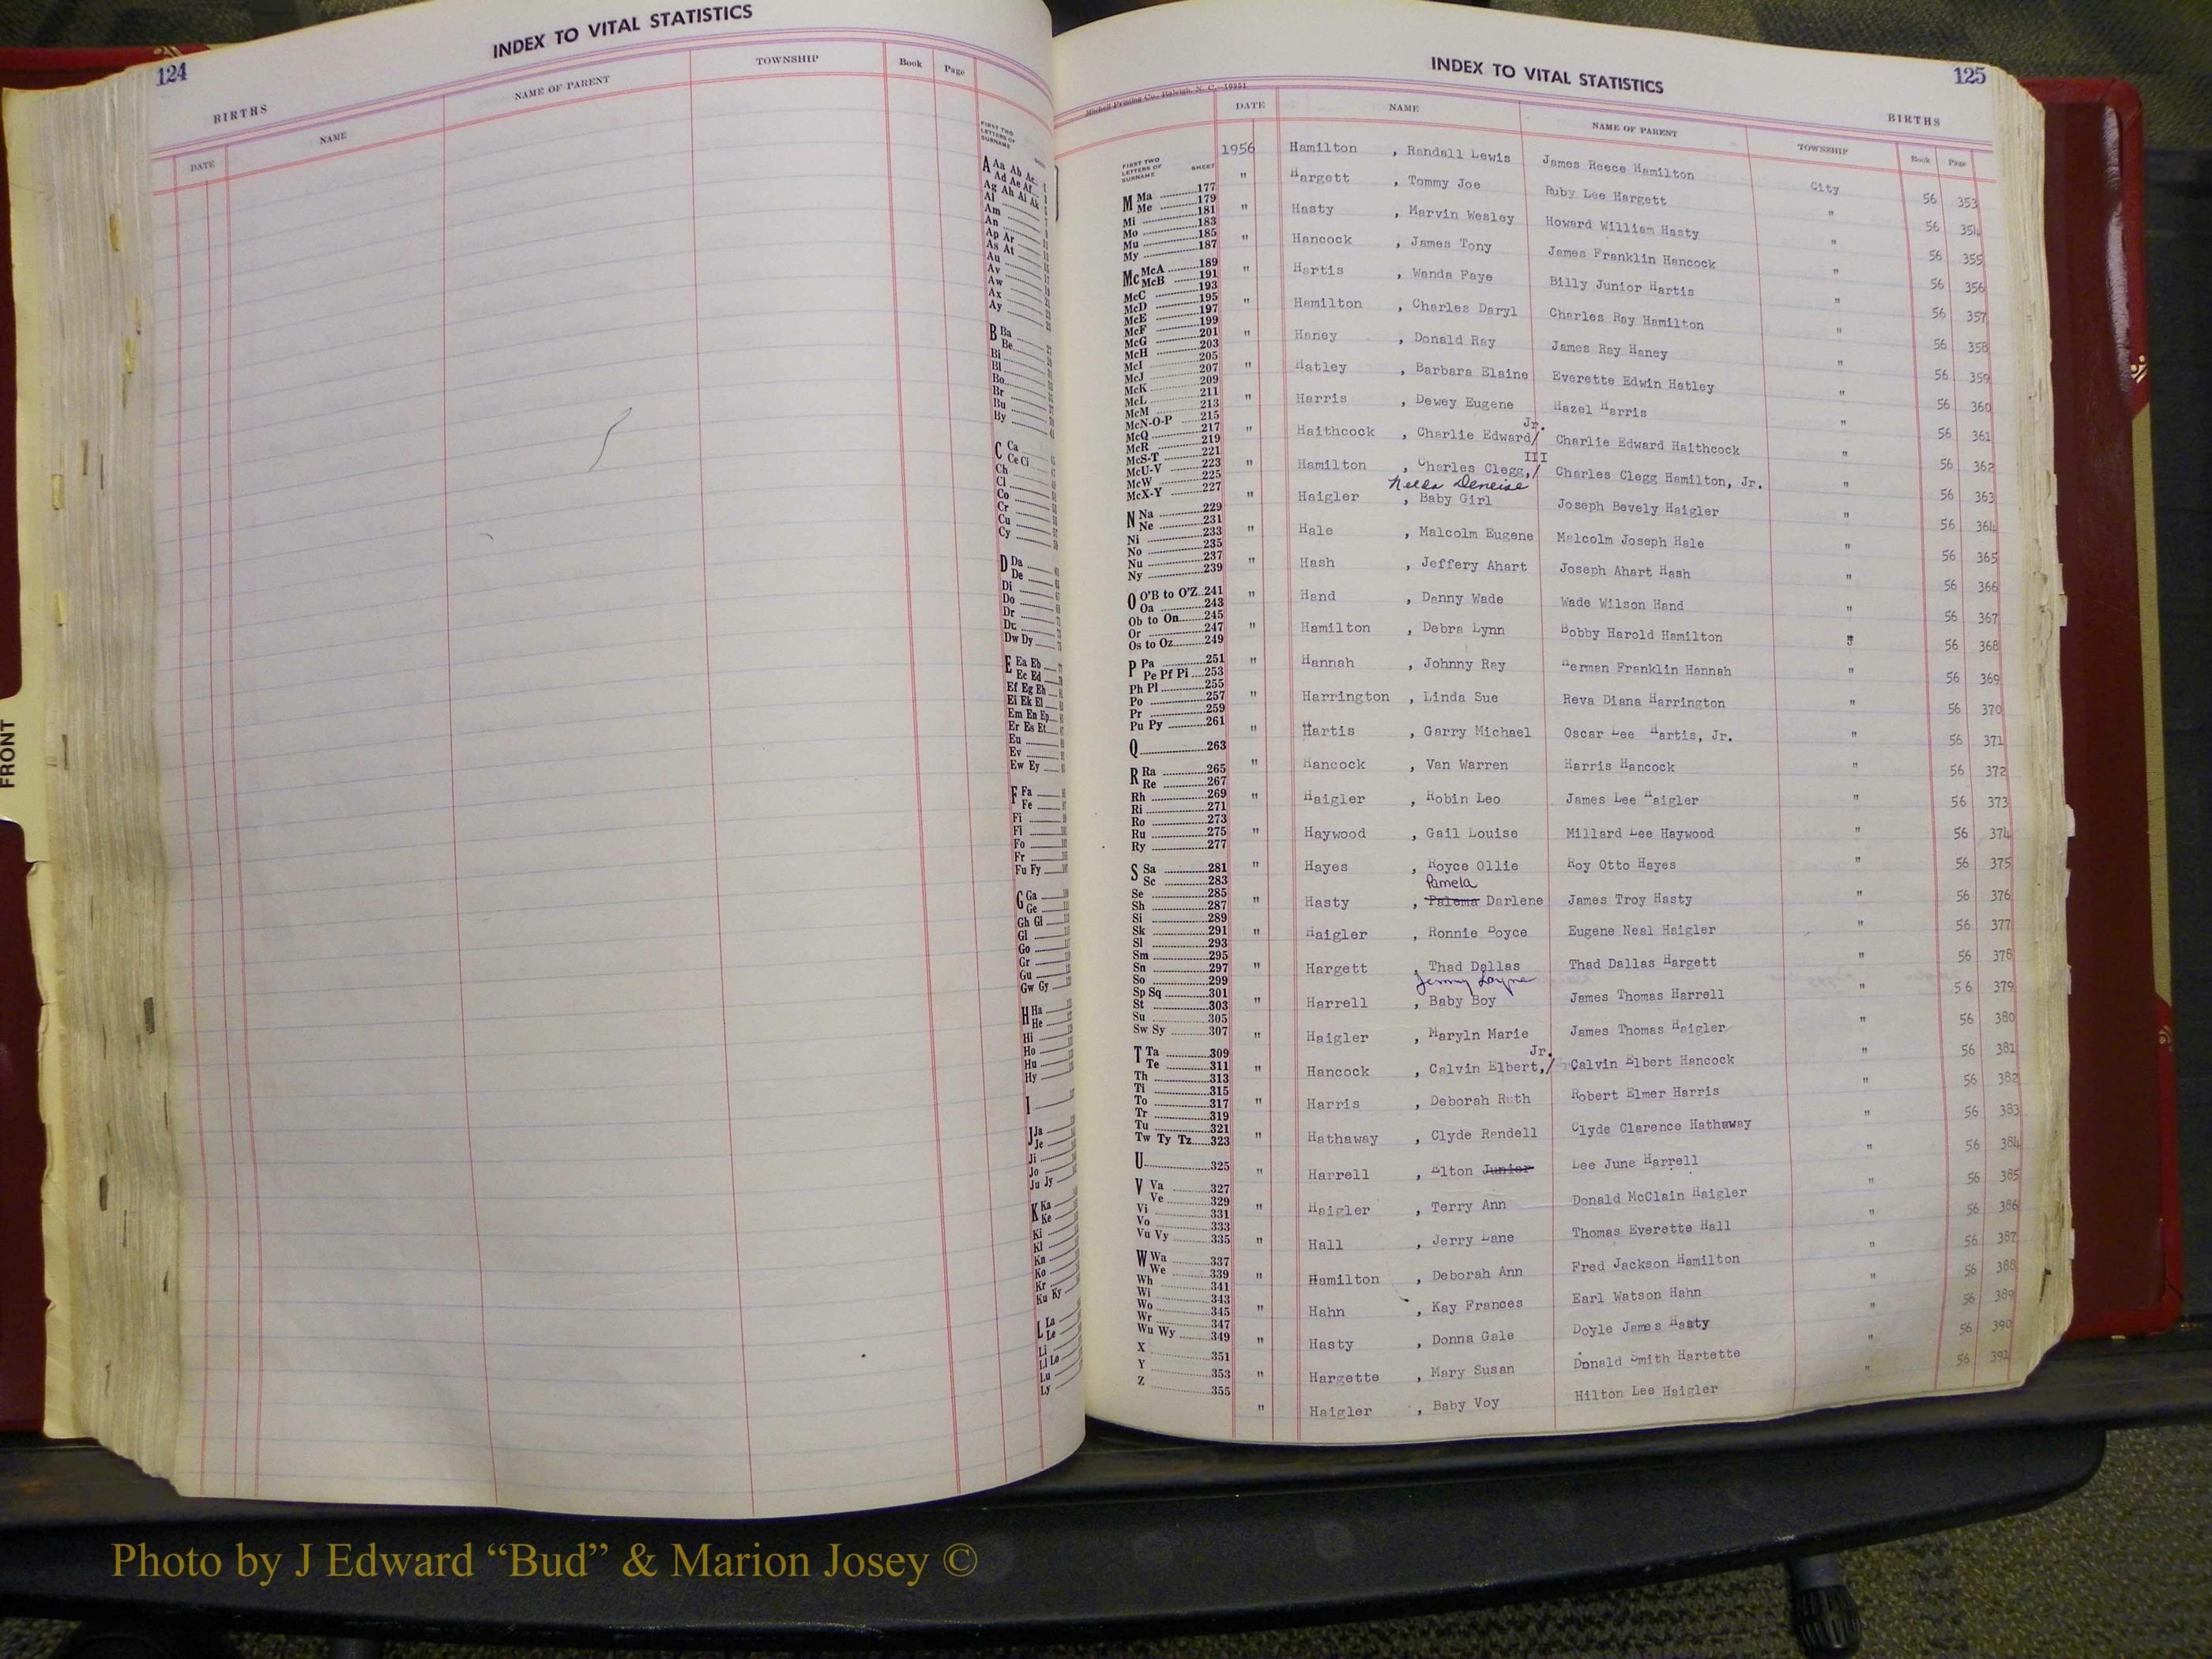 124
INDEX TO VITAL STATISTICS
BIRTHS
DATE NAME NAME OF PARENT TOWNSHIP Book Page
FIRST TWO LETTERS OF SURNAME
A Aa Ab Ac
Ad Ae Af
Ag Ah Ai Ak
Al
Am
An
Ap Ar
As At
Au
Av
Aw
Ax
Ay
B Ba
Be
Bi
Bl
Bo
Br
Bu
By
C Ca
Ce Ci
Ch
Cl
Co
Cr
Cu
Cy
D Da
De
Di
Do
Dr
Du
Dw Dy
E Ea Eb
Ec Ed
Ef Eg Eh
Ei Ek El
Em En Ep
Er Es Et
Eu
Ev
Ew Ey
F Fa
Fe
Fi
Fl
Fo
Fr
Fu Fy
G Ga
Ge
Gh Gi
Gl
Go
Gr
Gu
Gw Gy
H Ha
He
Hi
Ho
Hu
Hy
I
J Ja
Je
Ji
Jo
Ju Jy
K Ka
Ke
Ki
Kl
Kn
Ko
Kr
Ku Ky
L La
Le
Li
Ll Lo
Lu
Ly
FRONT
INDEX TO VITAL STATISTICS
125
Mitchell Printing Co., Raleigh, N. C.—10951
BIRTHS
DATE NAME NAME OF PARENT TOWNSHIP Book Page
FIRST TWO LETTERS OF SURNAME SHEET
M Ma 177
Me 179
Mi 181
Mo 183
Mu 185
My 187
Mc McA 189
McB 191
McC 193
McD 195
McE 197
McF 199
McG 201
McH 203
McI 205
McJ 207
McK 209
McL 211
McM 213
McN-O-P 215
McQ 217
McR 219
McS-T 221
McU-V 223
McW 225
McX-Y 227
N Na 229
Ne 231
Ni 233
No 235
Nu 237
Ny 239
O O'B to O'Z 241
Oa 243
Ob to On 245
Or 247
Os to Oz 249
P Pa 251
Pe Pf Pi 253
Ph Pl 255
Po 257
Pr 259
Pu Py 261
Q 263
R Ra 265
Re 267
Rh 269
Ri 271
Ro 273
Ru 275
Ry 277
S Sa 281
Sc 283
Se 285
Sh 287
Si 289
Sk 291
Sl 293
Sm 295
Sn 297
So 299
Sp Sq 301
St 303
Su 305
Sw Sy 307
T Ta 309
Te 311
Th 313
Ti 315
To 317
Tr 319
Tu 321
Tw Ty Tz 323
U 325
V Va 327
Ve 329
Vi 331
Vo 333
Vu Vy 335
W Wa 337
We 339
Wh 341
Wi 343
Wo 345
Wr 347
Wu Wy 349
X 351
Y 353
Z 355
1956 Hamilton , Randall Lewis James Reece Hamilton City 56 353
" Hargett , Tommy Joe Ruby Lee Hargett " 56 354
" Hasty , Marvin Wesley Howard William Hasty " 56 355
" Hancock , James Tony James Franklin Hancock " 56 356
" Hartis , Wanda Faye Billy Junior Hartis " 56 357
" Hamilton , Charles Daryl Charles Ray Hamilton " 56 358
" Haney , Donald Ray James Ray Haney " 56 359
" Hatley , Barbara Elaine Everette Edwin Hatley " 56 360
" Harris , Dewey Eugene Hazel Harris " 56 361
" Haithcock , Charlie Edward/ Jr. Charlie Edward Haithcock " 56 362
" Hamilton , Charles Clegg,/ III Charles Clegg Hamilton, Jr. " 56 363
Deneise
" Haigler , Baby Girl Joseph Bevely Haigler " 56 364
" Hale , Malcolm Eugene Malcolm Joseph Hale " 56 365
" Hash , Jeffery Ahart Joseph Ahart Hash " 56 366
" Hand , Danny Wade Wade Wilson Hand " 56 367
" Hamilton , Debra Lynn Bobby Harold Hamilton " 56 368
" Hannah , Johnny Ray Herman Franklin Hannah " 56 369
" Harrington , Linda Sue Reva Diana Harrington " 56 370
" Hartis , Garry Michael Oscar Lee Hartis, Jr. " 56 371
" Hancock , Van Warren Harris Hancock " 56 372
" Haigler , Robin Leo James Lee Haigler " 56 373
" Haywood , Gail Louise Millard Lee Haywood " 56 374
" Hayes , Royce Ollie Roy Otto Hayes " 56 375
Pamela
" Hasty , Palema Darlene James Troy Hasty " 56 376
" Haigler , Ronnie Boyce Eugene Neal Haigler " 56 377
" Hargett , Thad Dallas Thad Dallas Hargett " 56 378
Jemmy Layne
" Harrell , Baby Boy James Thomas Harrell " 56 379
" Haigler , Maryln Marie James Thomas Haigler " 56 380
" Hancock , Calvin Elbert,/ Jr. Calvin Elbert Hancock " 56 381
" Harris , Deborah Ruth Robert Elmer Harris " 56 382
" Hathaway , Clyde Randell Clyde Clarence Hathaway " 56 383
" Harrell , Elton Junior Lee June Harrell " 56 384
" Haigler , Terry Ann Donald McClain Haigler " 56 385
" Hall , Jerry Lane Thomas Everette Hall " 56 386
" Hamilton , Deborah Ann Fred Jackson Hamilton " 56 387
" Hahn , Kay Frances Earl Watson Hahn " 56 388
" Hasty , Donna Gale Doyle James Hasty " 56 389
" Hargette , Mary Susan Donald Smith Hartette " 56 390
" Haigler , Baby Voy Hilton Lee Haigler " 56 391
Photo by J Edward “Bud” & Marion Josey ©